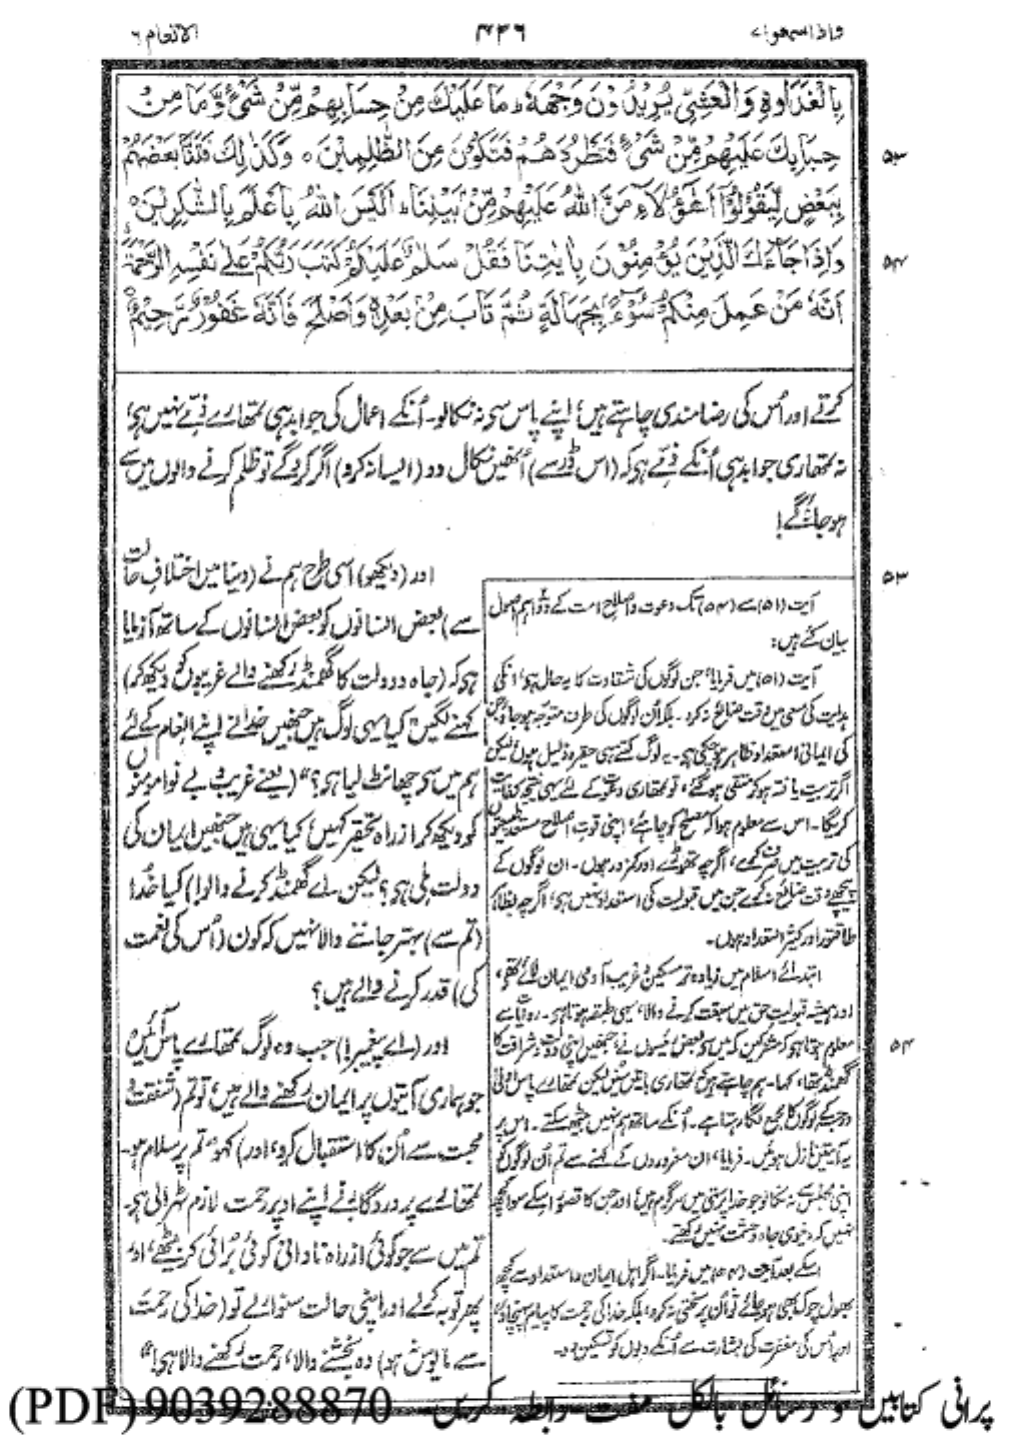 الانعام ٦
۴۳۶
واذا سمعوا ٧
بِالْغَدٰوةِ وَالْعَشِيِّ يُرِيْدُوْنَ وَجْهَهٗ ؕ مَا عَلَيْكَ مِنْ حِسَابِهِمْ مِّنْ شَيْءٍ وَّمَا مِنْ
حِسَابِكَ عَلَيْهِمْ مِّنْ شَيْءٍ فَتَطْرُدَهُمْ فَتَكُوْنَ مِنَ الظّٰلِمِيْنَ ○ وَكَذٰلِكَ فَتَنَّا بَعْضَهُمْ
۵۳
بِبَعْضٍ لِّيَقُوْلُوْۤا اَهٰۤؤُلَآءِ مَنَّ اللّٰهُ عَلَيْهِمْ مِّنْۢ بَيْنِنَا ؕ اَلَيْسَ اللّٰهُ بِاَعْلَمَ بِالشّٰكِرِيْنَ ○
وَاِذَا جَآءَكَ الَّذِيْنَ يُؤْمِنُوْنَ بِاٰيٰتِنَا فَقُلْ سَلٰمٌ عَلَيْكُمْ كَتَبَ رَبُّكُمْ عَلٰى نَفْسِهِ الرَّحْمَةَ
۵۴
اَنَّهٗ مَنْ عَمِلَ مِنْكُمْ سُوْٓءًۢا بِجَهَالَةٍ ثُمَّ تَابَ مِنْۢ بَعْدِهٖ وَاَصْلَحَ فَاَنَّهٗ غَفُوْرٌ رَّحِيْمٌ ○
کرتے اور اُس کی رضامندی چاہتے ہیں، اپنے پاس سے نہ نکالو۔ اُنکے اعمال کی جوابدہی تمھارے ذمّے نہیں ہے،
نہ تمھاری جوابدہی اُنکے ذمّے ہے کہ (اس ڈر سے) اُنھیں نکال دو (ایسا نہ کرو) اگر کرو گے تو ظلم کرنے والوں میں سے
ہو جاؤ گے!
اور (دیکھو) اسی طرح ہم نے (دنیا میں اختلافِ حالت
۵۳
سے) بعض انسانوں کو بعض انسانوں کے ساتھ آزمایا
ہے کہ (جاہ و دولت کا گھمنڈ رکھنے والے غریبوں کو دیکھ کر)
کہنے لگیں "کیا یہی لوگ ہیں جنھیں خدا نے اپنے انعام کے لئے
ہم میں سے چھانٹ لیا ہے؟" (یعنے غریب بے نوا مومنوں
کو دیکھ کر از راہ تحقیر کہیں، کیا یہی ہیں جنھیں ایمان کی
دولت ملی ہے؟ لیکن اے گھمنڈ کرنے والو!) کیا خدا
(تم سے) بہتر جاننے والا نہیں کہ کون (اُس کی نعمت
کی) قدر کرنے والے ہیں؟
اور (اے پیغمبر!) جب وہ لوگ تمھارے پاس آئیں
۵۴
جو ہماری آیتوں پر ایمان رکھنے والے ہیں، تو تم (شفقت و
محبت سے اُن کا استقبال کرو، اور) کہو "تم پر سلام ہو۔
تمھارے پروردگار نے اپنے اوپر رحمت لازم ٹھرا لی ہے۔
تم میں سے جو کوئی از راہ نادانی کوئی بُرائی کر بیٹھے، اور
پھر توبہ کر لے اور اپنی حالت سنوار لے تو (خدا کی رحمت
سے مایوس نہ ہو) وہ بخشنے والا، رحمت رکھنے والا ہے!"
آیت (۵۱) سے (۵۴) تک دعوت و اصلاح امت کے دو اہم اصول
بیان کئے ہیں:
آیت (۵۱) میں فرمایا، جن لوگوں کی شقاوت کا یہ حال ہو، انکی
ہدایت کی سعی میں وقت ضائع نہ کرو۔ بلکہ اُن لوگوں کی طرف متوجہ ہو جاؤ جن
کی ایمانی استعداد ظاہر ہو چکی ہے۔ یہ لوگ کتنے ہی حقیر و ذلیل ہوں لیکن
اگر تربیت یافتہ ہو کر متقی ہو گئے، تو تمھاری دعوت کے لئے یہی نتیجہ کفایت
کریگا۔ اس سے معلوم ہوا کہ مصلح کو چاہئے، اپنی قوتِ اصلاح مستعد طبیعتوں
کی تربیت میں صرف کرے، اگرچہ تھوڑے اور کمزور ہوں۔ ان لوگوں کے
پیچھے وقت ضائع نہ کرے جن میں قبولیت کی استعداد نہیں ہے، اگرچہ بظاہر
طاقتور اور کثیر التعداد ہوں۔
ابتدائے اسلام میں زیادہ تر مسکین و غریب آدمی ایمان لائے تھے،
اور ہمیشہ قبولیتِ حق میں سبقت کرنے والا، یہی طبقہ ہوتا ہے۔ روایات سے
معلوم ہوتا ہے کہ مشرکین مکہ میں سے بعض رئیسوں نے، جنھیں اپنی دولت و شرافت کا
گھمنڈ تھا، کہا۔ ہم چاہتے ہیں کہ تمھاری باتیں سنیں لیکن تمھارے پاس ادنیٰ
درجہ کے لوگوں کا مجمع لگا رہتا ہے۔ اُنکے ساتھ ہم نہیں بیٹھ سکتے۔ اس پر
یہ آیتیں نازل ہوئیں۔ فرمایا، ان مغروروں کے کہنے سے تم اُن لوگوں کو
اپنی مجلس سے نہ نکالو جو خدا پرستی میں سرگرم ہیں، اور جن کا قصور اسکے سوا کچھ
نہیں کہ دنیوی جاہ و حشمت نہیں رکھتے۔
اسکے بعد آیت (۵۴) میں فرمایا۔ اگر اہل ایمان و استعداد سے کچھ
بھول چوک بھی ہو جائے تو اُن پر سختی نہ کرو، بلکہ خدا کی رحمت کا پیام پہنچاؤ،
اور اُس کی مغفرت کی بشارت سے اُنکے دلوں کو تسکین دو۔
پرانی کتابیں و رسائل بالکل مفت رابطہ کریں (PDF) 9039288870